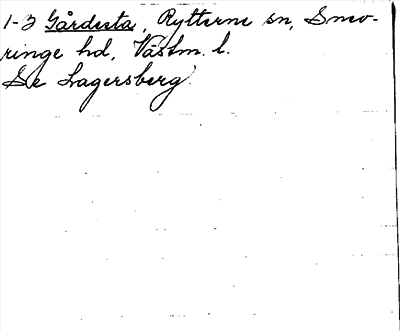 1-3 Gårdesta, Rytterne sn, Snev-
ringe hd, Västm. l.
Se Lagersberg.